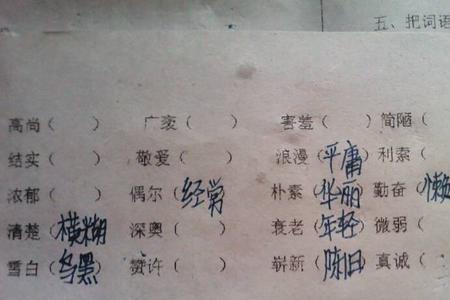 五、把词语
高尚（ ） 广袤（ ） 害羞（ ） 简陋（
结实（ ） 敬爱（ ） 浪漫（平庸） 利索（
浓郁（ ） 偶尔（经常） 朴素（华丽） 勤奋（懒
清楚（横糊） 深奥（ ） 衰老（年轻） 微弱（
雪白（乌黑） 赞许（ ） 崭新（陈旧） 真诚（